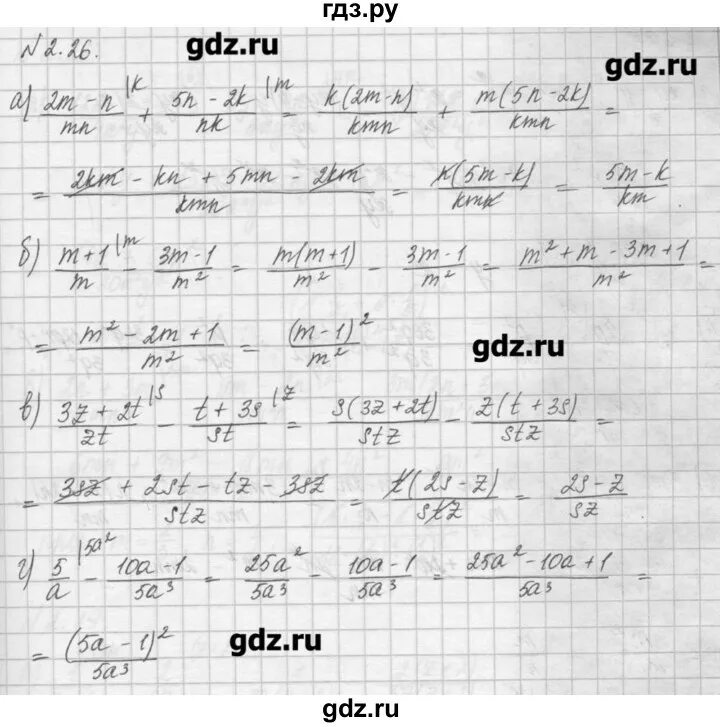 гдз.ру
N 2.26.
gdz.ru
gdz.ru
а) (2m - n)/mn |k + (5n - 2k)/nk |m = k(2m-n)/kmn + m(5n-2k)/kmn =
= (2km - kn + 5mn - 2km)/kmn = n(5m-k)/kmn = (5m-k)/km.
б) (m+1)/m |m - (3m-1)/m² = m(m+1)/m² - (3m-1)/m² = (m²+m-3m+1)/m² =
= (m² - 2m + 1)/m² = (m-1)²/m²
gdz.ru
в) (3z + 2t)/zt |s - (t + 3s)/st |z = s(3z+2t)/stz - z(t+3s)/stz =
= (3sz + 2st - tz - 3sz)/stz = t(2s-z)/stz = (2s-z)/sz.
г) 5/a |5a² - (10a-1)/5a³ = 25a²/5a³ - (10a-1)/5a³ = (25a²-10a+1)/5a³ =
= (5a-1)²/5a³
gdz.ru
gdz.ru